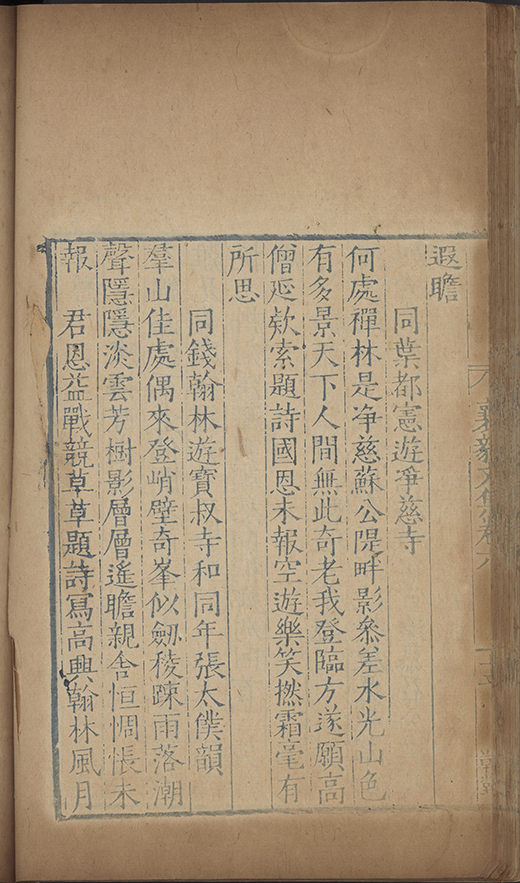 遐瞻
同葉都憲遊淨慈寺
何處禪林是净慈蘇公隄畔影叅差水光山色
有多景天下人間無此奇老我登臨方遂願高
僧延欵索題詩國恩未報空遊樂笑撚霜毫有
所思
同錢翰林遊寶叔寺和同年張太僕韻
羣山佳處偶來登峭壁竒峯似劒稜踈雨落潮
聲隱隱淡雲芳樹影層層遙瞻親舎恒惆悵未
報　君恩益戰競草草題詩寫高興翰林風月
襄毅文集卷六